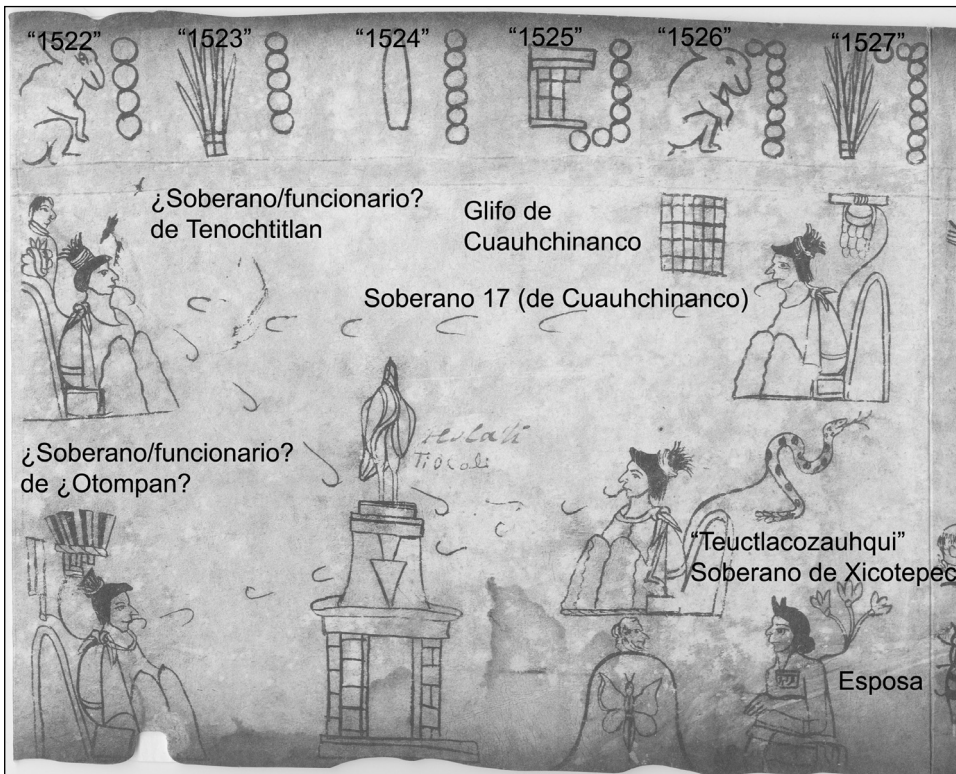 “1522” “1523” “1524” “1525” “1526” “1527”
¿Soberano/funcionario?
de Tenochtitlan
Glifo de
Cuauhchinanco
Soberano 17 (de Cuauhchinanco)
¿Soberano/funcionario?
de ¿Otompan?
“Teuctlacozauhqui”
Soberano de Xicotepec
Esposa